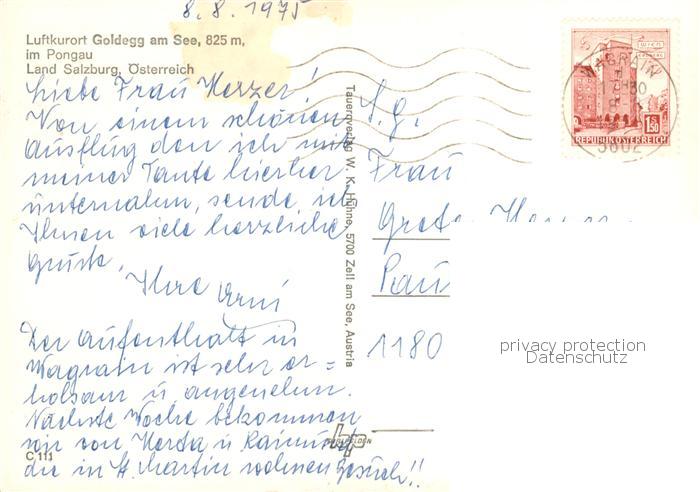 8.8.1975
Luftkurort Goldegg am See, 825 m,
im Pongau
Land Salzburg, Österreich
Liebe Frau Herzer!
Von einem schönen
Ausflug den ich mit
meiner Tante hierher
unternahm, sende ich
Ihnen viele herzliche
Grüße.
Ihre Erni
Der Aufenthalt in
Wagrain ist sehr er=
holsam u. angenehm.
Nächste Woche bekommen
wir von Herta u. Raimund
die in St. Martin wohnen Besuch!!
C 111
Tauernverlag W. K. Hühne, 5700 Zell am See, Austria
S.g.
Frau
Grete
1180
WIEN
WAGRAIN
1.50
REPUBLIK ÖSTERREICH
privacy protection
Datenschutz